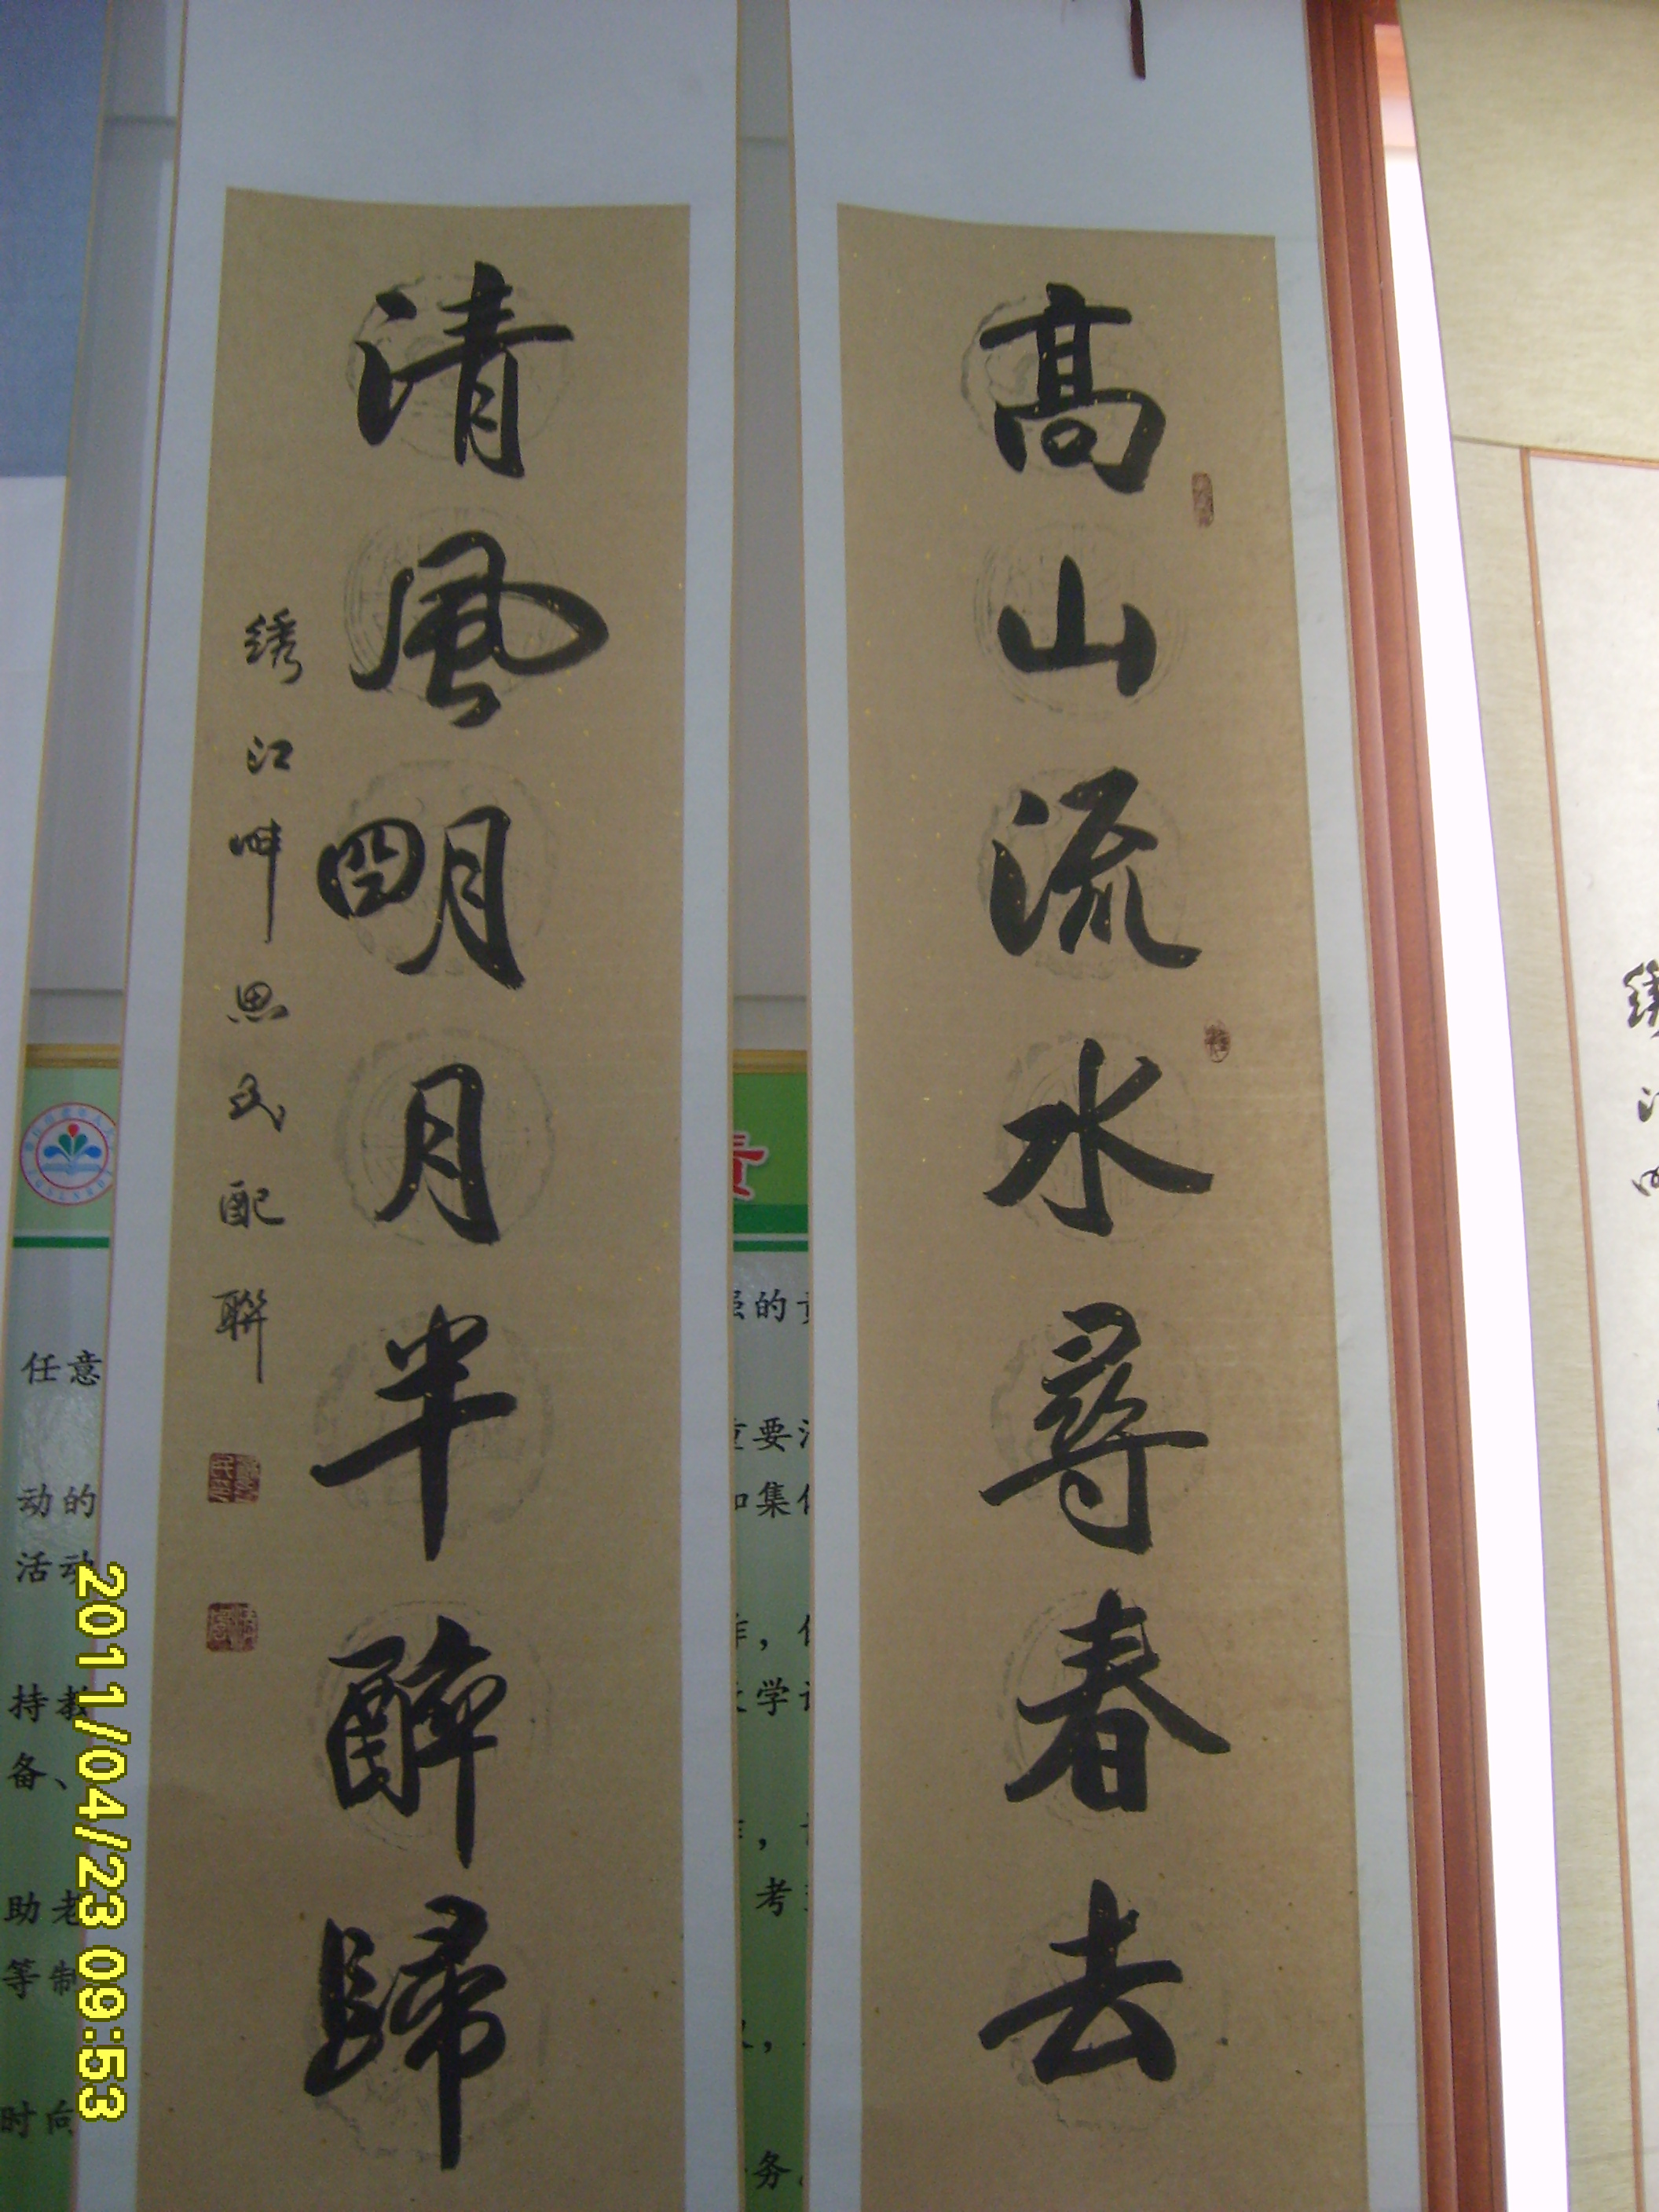 高山流水尋春去
清風明月半醉歸
绣江畔思民配聯
任意
动的
活动
持教
备、
助老
等制
时向
强的
重要
和集
学
考
务
2011/04/23 09:53